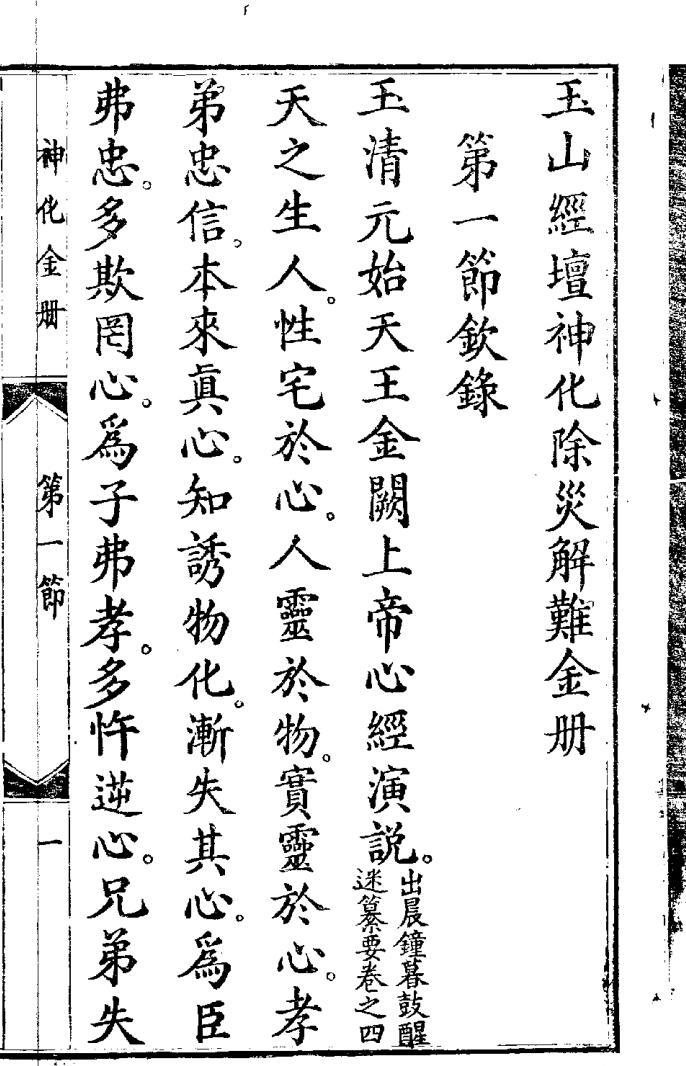 玉山經壇神化除災解難金册
第一節欽錄
玉清元始天王金闕上帝心經演説。出晨鐘暮鼓醒
迷纂要卷之四
天之生人。性宅於心。人靈於物。實靈於心。孝
弟忠信。本來眞心。知誘物化。漸失其心。爲臣
弗忠。多欺罔心。爲子弗孝。多忤逆心。兄弟失
神化金册 第一節 一